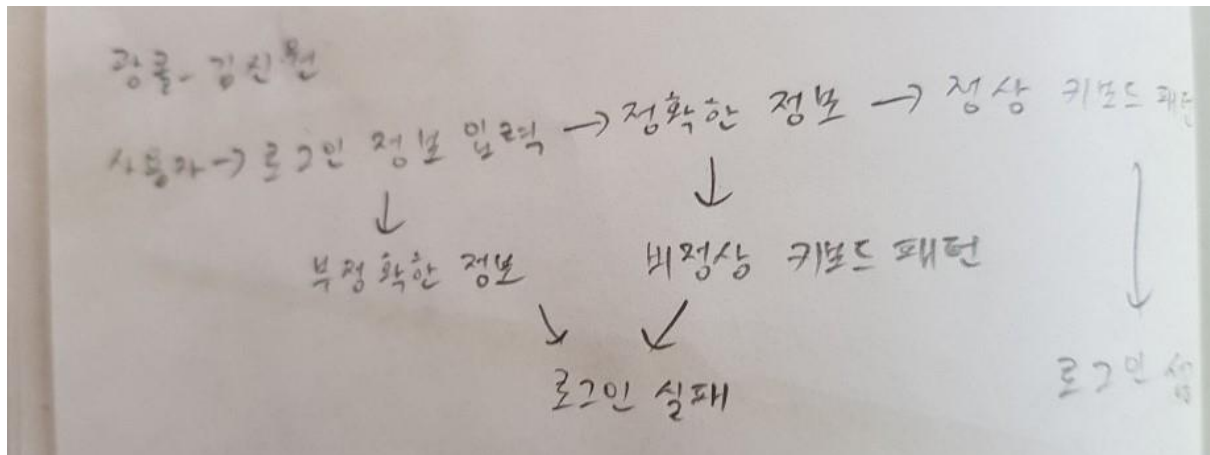 김진원
사용자 → 로그인 정보 입력 → 정확한 정보 → 정상 키보드 패턴
↓ ↓ ↓
부정확한 정보 비정상 키보드 패턴
↘ ↙
로그인 실패 로그인